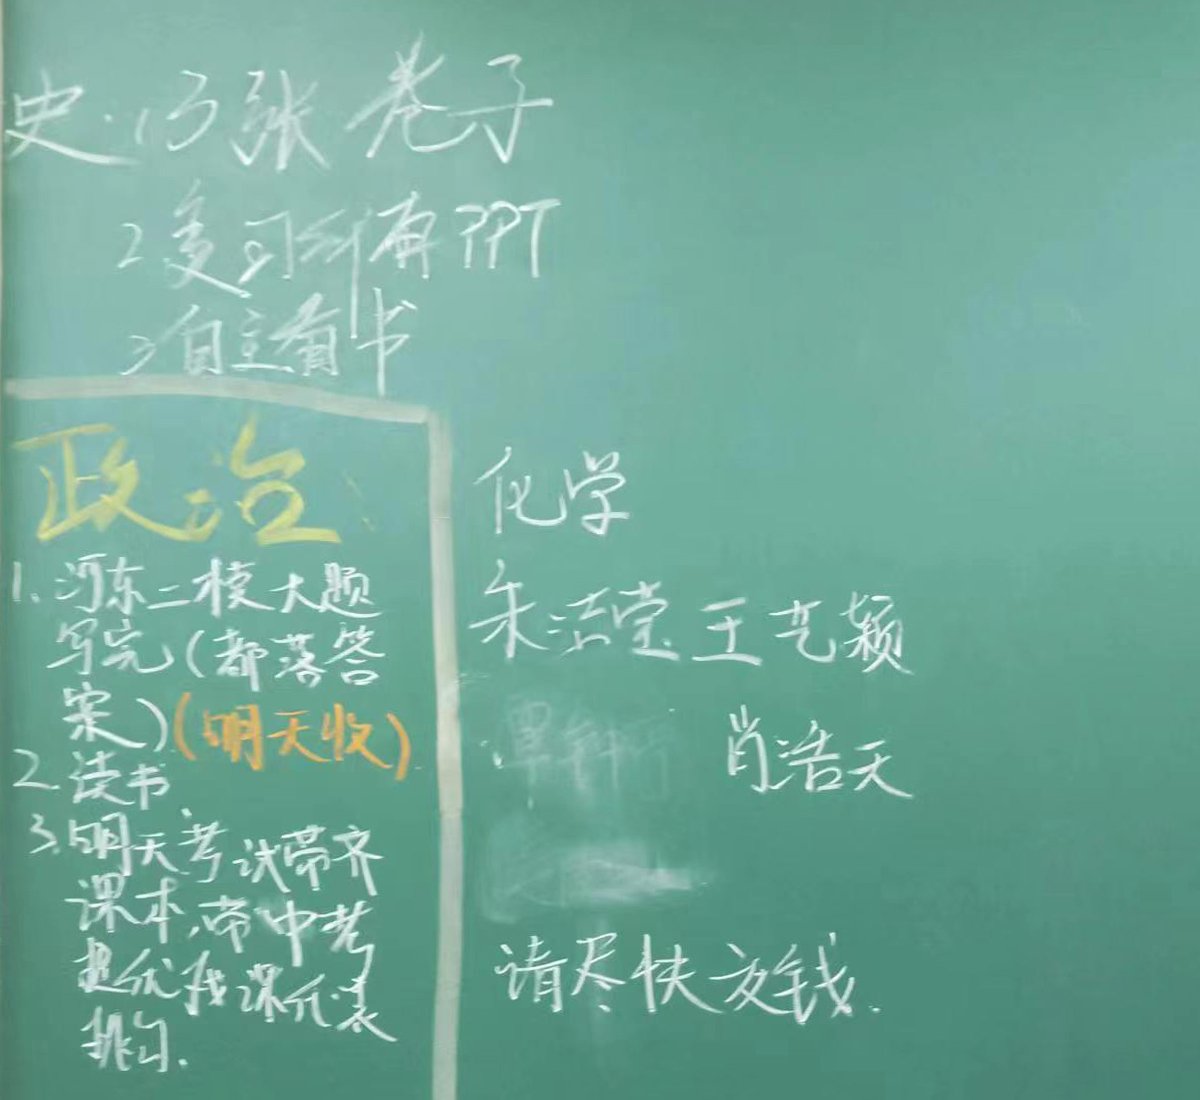 史.(1)3张卷子
2复习所有PPT
3自主看书
政治:
1.河东二模大题
写完(都落答
案)(明天收)
2.读书
3.明天考试带齐
课本,带中考
提优找课代表
化学
朱洁莹 王艺颖
肖浩天
请尽快交钱.